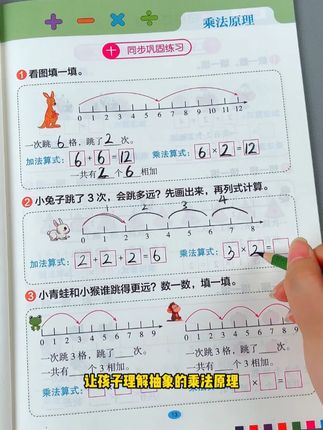 + − × ÷
乘法原理
同步巩固练习
1 看图填一填。
0 1 2 3 4 5 6 7 8 9 10 11 12
一次跳 6 格，跳了 2 次。
加法算式：6 + 6 = 12 乘法算式：6 × 2 = 12
一共有 2 个 6 相加
2 小兔子跳了 3 次，会跳多远？先画出来，再列式计算。
2 3 4
0 1 2 3 4 5 6 7 8
加法算式：2 + 2 + 2 = 6 乘法算式：3 × 2 =
3 小青蛙和小猴谁跳得更远？数一数，填一填。
0 1 2 3 4 5 6 7 8 9 0 1 2 3 4 5 6 7 8 9
一次跳 3 格，跳了 次。 一次跳 3 格，跳了 次。
一共有 个 3 相加。 一共有 个 3 相加。
让孩子理解抽象的乘法原理
乘法算式： × = 
13